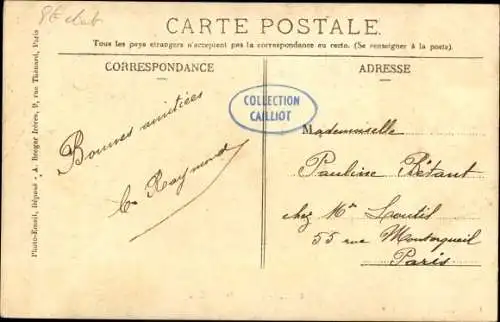 CARTE POSTALE.
Tous les pays étrangers n'acceptent pas la correspondance au recto. (Se renseigner à la poste).
CORRESPONDANCE
Bonnes amitiées
Raymond
ADRESSE
COLLECTION
CAILLIOT
Mademoiselle
Pauline Rétant
chez Mr Loutil
55 rue Montorgueil
Paris
Photo-Email, Déposé - A. Breger frères, 9, rue Thénard, Paris